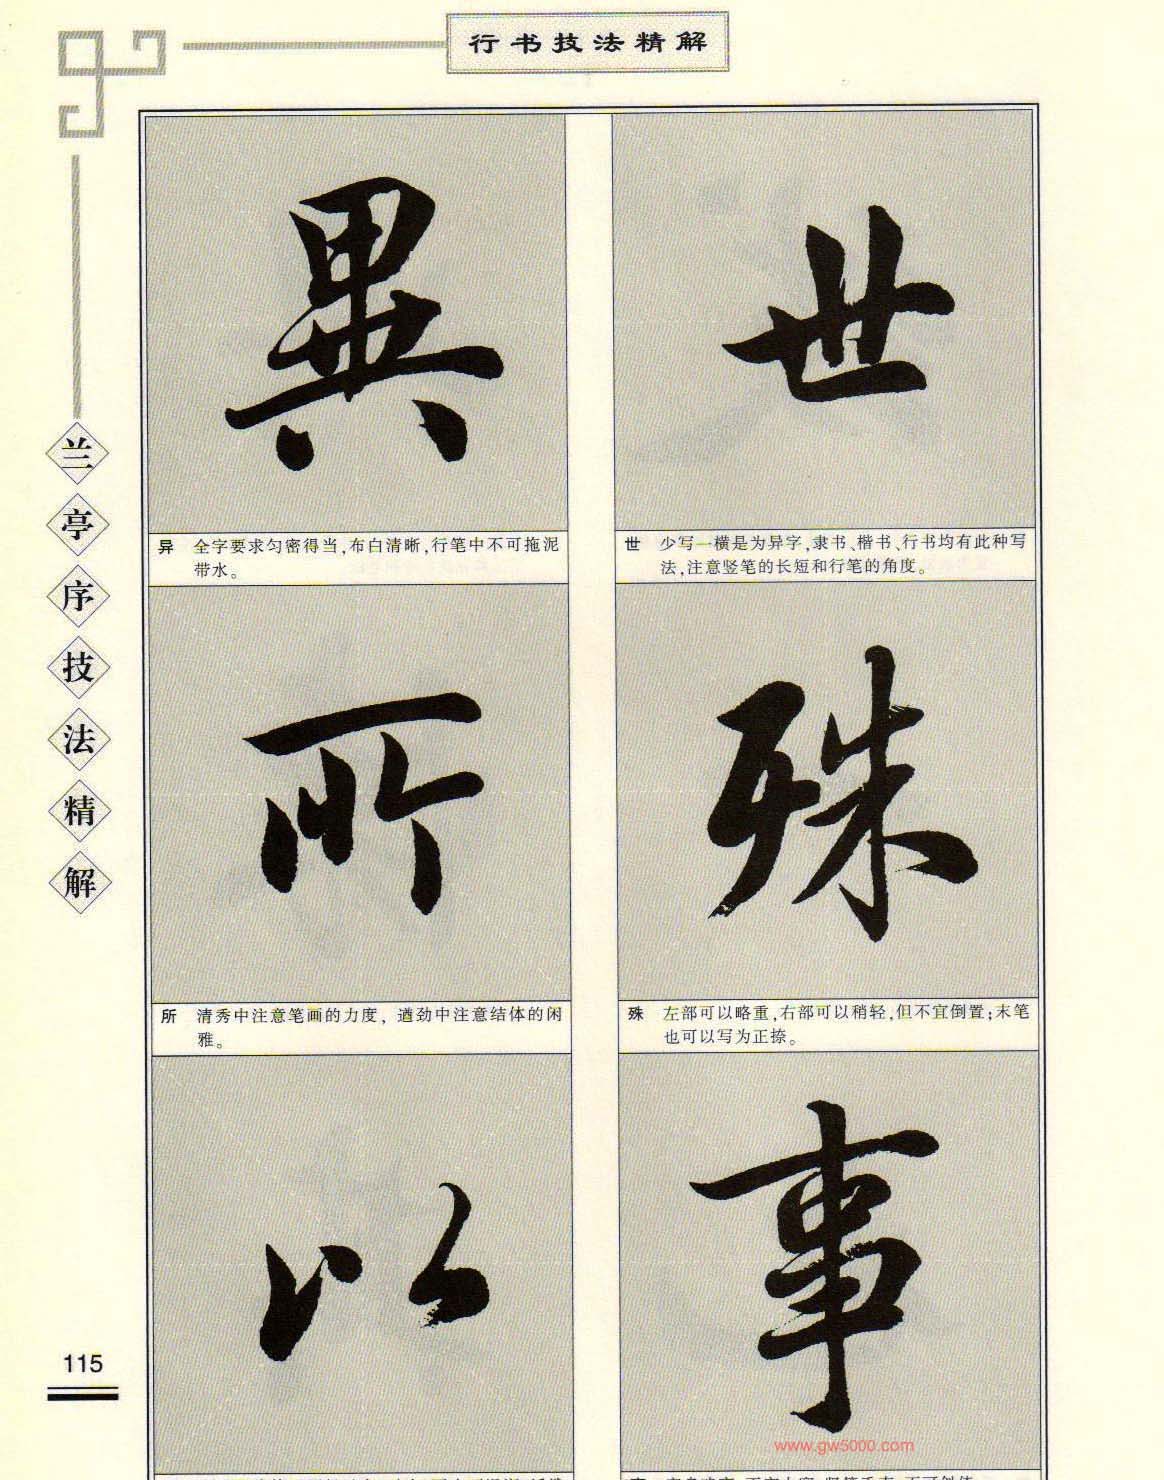 行书技法精解
兰亭序技法精解
世
世 少写一横是为异字,隶书、楷书、行书均有此种写
法,注意竖笔的长短和行笔的角度。
殊
殊 左部可以略重,右部可以稍轻,但不宜倒置;末笔
也可以写为正捺。
事
異
异 全字要求匀密得当,布白清晰,行笔中不可拖泥
带水。
所
所 清秀中注意笔画的力度,遒劲中注意结体的闲
雅。
以
115
www.gw5000.com